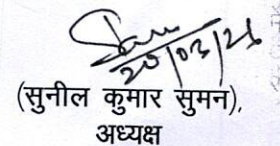 20/03/26
(सुनील कुमार सुमन),
अध्यक्ष